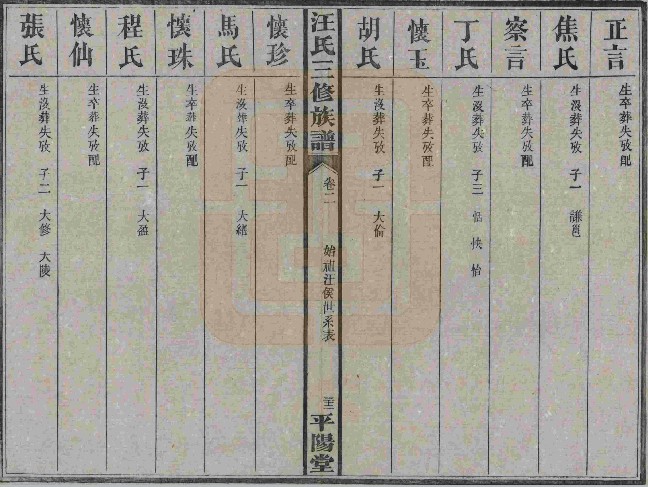 正言
生卒葬失攷配
焦氏
生沒葬失攷 子一 謙邕
察言
生卒葬失攷配
丁氏
生沒葬失攷 子三
懷玉
生卒葬失攷配
胡氏
生沒葬失攷 子一 大倫
汪氏三修族譜 卷二 始祖汪侯世系表 平陽堂
懷珍
生卒葬失攷配
馬氏
生沒葬失攷 子一 大緒
懷珠
生卒葬失攷配
程氏
生沒葬失攷 子一 大盈
懷仙
生卒葬失攷配
張氏
生沒葬失攷 子二 大修 大陵